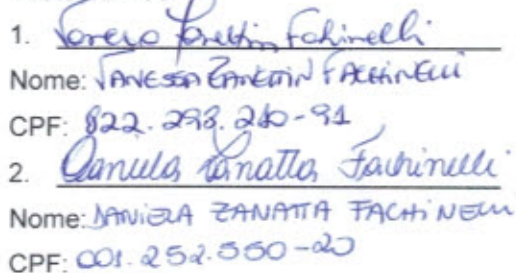 1. Vanessa Zanettin Fachinelli
Nome: VANESSA ZANETTIN FACHINELLI
CPF: 822.293.210-91
2. Daniela Zanatta Fachinelli
Nome: DANIELA ZANATTA FACHINELLI
CPF: 001.252.550-20